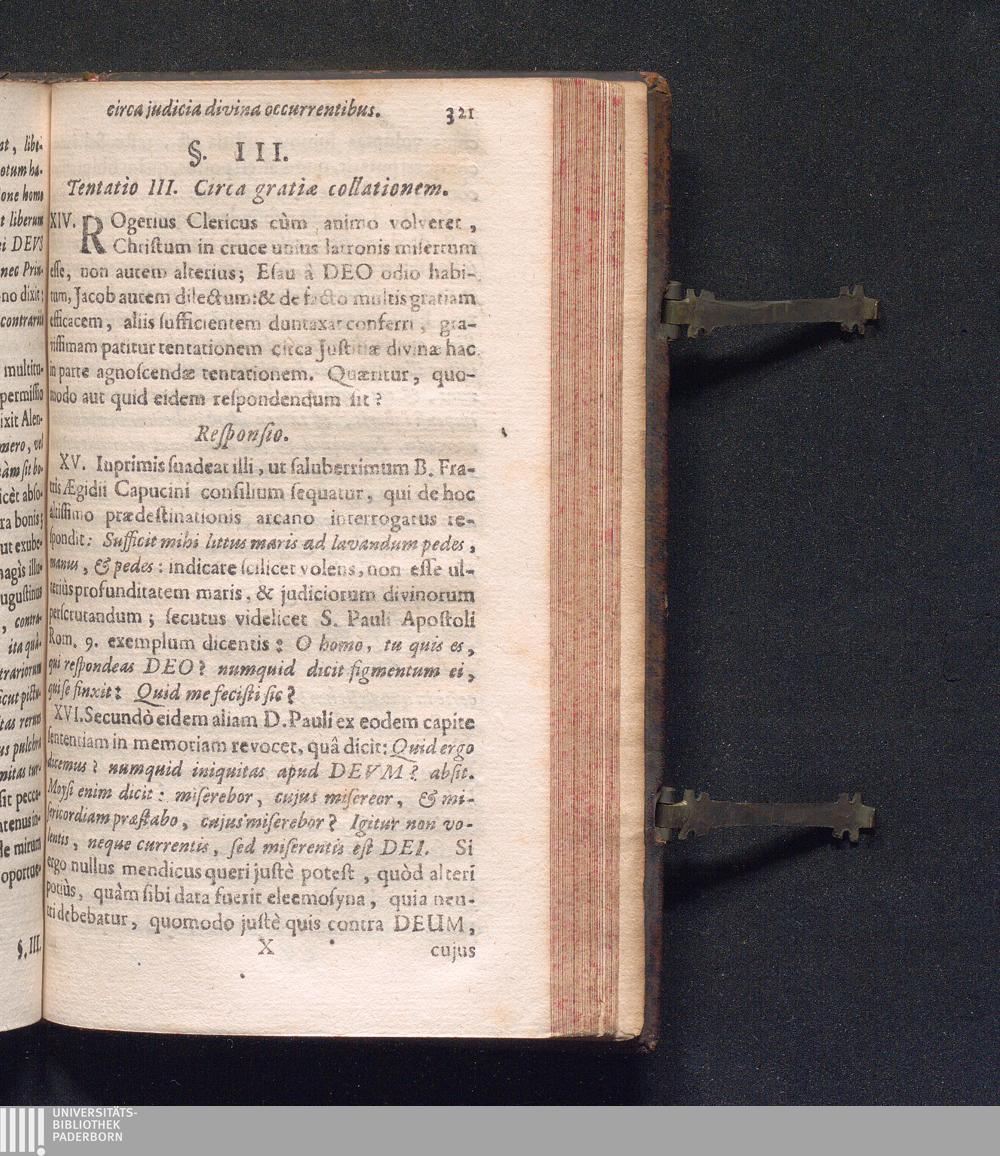 circa judicia divina occurrentibus. 321
§. III.
Tentatio III. Circa gratiæ collationem.
XIV. ROgerius Clericus cùm animo volveret,
Christum in cruce unius latronis misertum
esse, non autem alterius; Esau à DEO odio habi-
tum, Jacob autem dilectum: & de facto multis gratiam
efficacem, aliis sufficientem duntaxat conferri, gra-
vissimam patitur tentationem circa Justitiæ divinæ hac
in parte agnoscendæ tentationem. Quæritur, quo-
modo aut quid eidem respondendum sit?
Responsio.
XV. Inprimis suadeat illi, ut saluberrimum B. Fra-
tris Ægidii Capucini consilium sequatur, qui de hoc
altissimo prædestinationis arcano interrogatus re-
spondit: Sufficit mihi littus maris ad lavandum pedes,
manus, & pedes: indicare scilicet volens, non esse ul-
teriùs profunditatem maris, & judiciorum divinorum
perscrutandum; secutus videlicet S. Pauli Apostoli
Rom. 9. exemplum dicentis: O homo, tu quis es,
qui respondeas DEO? numquid dicit figmentum ei,
qui se finxit: Quid me fecisti sic?
XVI. Secundò eidem aliam D. Pauli ex eodem capite
sententiam in memoriam revocet, quâ dicit: Quid ergo
dicemus? numquid iniquitas apud DEVM? absit.
Moysi enim dicit: miserebor, cujus misereor, & mi-
sericordiam præstabo, cujus miserebor? Igitur non vo-
lentis, neque currentis, sed miserentis est DEI. Si
ergo nullus mendicus queri justè potest, quòd alteri
potiùs, quàm sibi data fuerit eleemosyna, quia neu-
tri debebatur, quomodo justè quis contra DEUM,
X cujus
nt, libe-
otum ha-
ione homo
t liberum
ei DEVS
nec Prin-
no dixit;
contrarius
multitu-
permissio
ixit Alen-
mero, vel
àm sit bo-
icèt abso-
ra bonis;
ut exube-
magis illo-
ugustinus
, contra-
ita quâ-
trariorum
icut pictu-
tas rerum
us pulchra
nitas tur-
sit pecca-
atenus in-
le mirum
oportue-
§. III.
UNIVERSITÄTS-
BIBLIOTHEK
PADERBORN